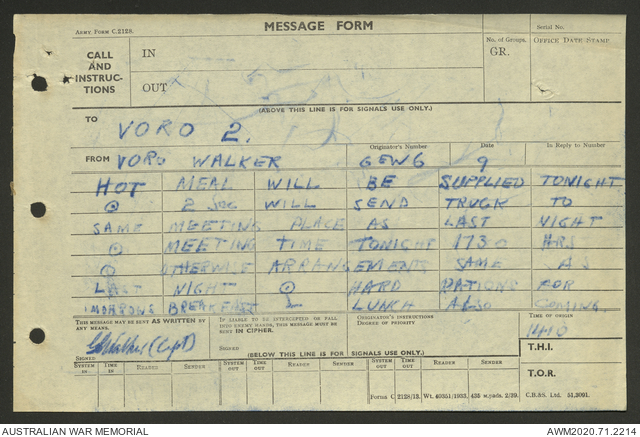 MESSAGE FORM
Army Form C.2128.
Serial No.
CALL AND INSTRUCTIONS
IN
OUT
No. of Groups. GR.
OFFICE DATE STAMP
(ABOVE THIS LINE IS FOR SIGNALS USE ONLY.)
TO VORO 2.
FROM VORO WALKER
Originator's Number GEW6
Date 9
In Reply to Number
HOT MEAL WILL BE SUPPLIED TONIGHT
⊙ 2 WILL SEND TRUCK TO
SAME MEETING PLACE AS LAST NIGHT
⊙ MEETING TIME TONIGHT 1730 HRS
⊙ OTHERWISE ARRANGEMENTS SAME AS
LAST NIGHT ⊙ HARD RATIONS FOR
BREAKFAST LUNCH ALSO COMING.
THIS MESSAGE MAY BE SENT AS WRITTEN BY ANY MEANS.
IF LIABLE TO BE INTERCEPTED OR FALL INTO ENEMY HANDS, THIS MESSAGE MUST BE SENT IN CIPHER.
ORIGINATOR'S INSTRUCTIONS DEGREE OF PRIORITY
TIME OF ORIGIN 1410
SIGNED (Capt)
SIGNED
(BELOW THIS LINE IS FOR SIGNALS USE ONLY.)
T.H.I.
T.O.R.
SYSTEM IN
TIME IN
READER
SENDER
SYSTEM OUT
TIME OUT
READER
SENDER
SYSTEM OUT
TIME OUT
READER
SENDER
Forms C.2128/13. Wt. 40351/1933. 2/39. C.B.&S. Ltd. 51.3001.
AUSTRALIAN WAR MEMORIAL
AWM2020.71.2214